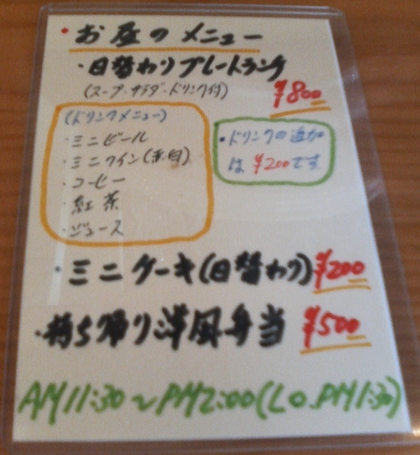 ・お昼のメニュー
・日替わりプレートランチ
(スープ・サラダ・ドリンク付)
¥800
(ドリンクメニュー)
・ミニビール
・ミニワイン(赤・白)
・コーヒー
・紅茶
・ジュース
・ドリンクの追加
は¥200です
・ミニケーキ(日替わり)¥200
・持ち帰り洋風弁当 ¥500
AM11:30～PM2:00(L.O.PM1:30)